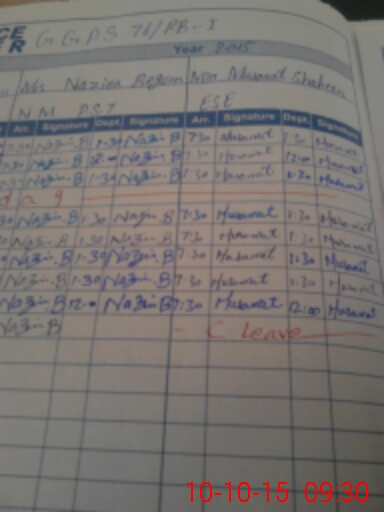 CE
ER G.G.P.S 76/RB-I
Year 2015
Nazina Begum Musarat Shaheen
N M P.S.T ESE
Signature Dept. Signature Arr. Signature Dept. Signature
Nazin.B 1.30 Nazin.B 7:30 Musarat 1:30 Musarat
Nazin.B 12.00 Nazin.B 7:30 Musarat 12:00 Musarat
Nazin.B 1.30 Nazin.B 7:30 Musarat 1:30 Musarat
d a y
Nazin.B 1.30 Nazin.B 7:30 Musarat 1:30 Musarat
Nazin.B 1.30 Nazin.B 7:30 Musarat 1:30 Musarat
Nazin.B 1.30 Nazin.B 7:30 Musarat 1:30 Musarat
Nazin.B 1.30 Nazin.B 7:30 Musarat 1:30 Musarat
Nazin.B 12.00 Nazin.B 7:30 Musarat 12:00 Musarat
Nazin.B - C leave
10-10-15 09:30